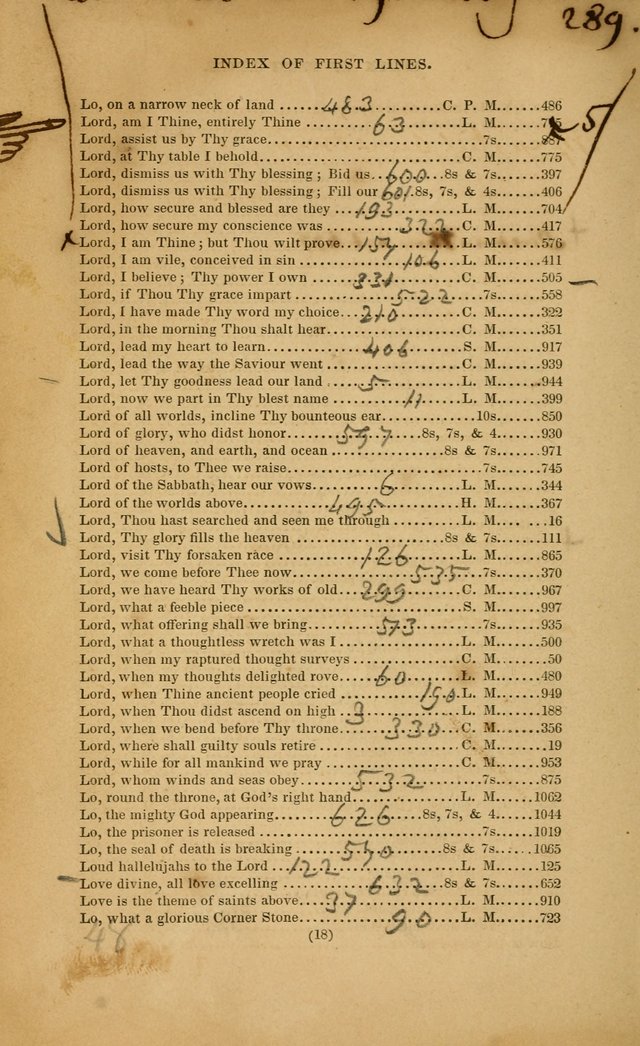 289.
INDEX OF FIRST LINES.
Lo, on a narrow neck of land ......483............C. P. M.......486
Lord, am I Thine, entirely Thine ..........63..........L. M....... 5
Lord, assist us by Thy grace................................7s.......887
Lord, at Thy table I behold..............................C. M.......775
Lord, dismiss us with Thy blessing; Bid us..600...8s & 7s.......397
Lord, dismiss us with Thy blessing; Fill our 601.8s, 7s, & 4s.......406
Lord, how secure and blessed are they ....193..........L. M.......704
Lord, how secure my conscience was ..........322..C. M.......417
x Lord, I am Thine; but Thou wilt prove...157..........L. M.......576
Lord, I am vile, conceived in sin ................106....L. M.......411
Lord, I believe; Thy power I own ......331..........C. M.......505
Lord, if Thou Thy grace impart ................522......7s.......558
Lord, I have made Thy word my choice...210..........C. M.......322
Lord, in the morning Thou shalt hear....................C. M.......351
Lord, lead my heart to learn................406........S. M.......917
Lord, lead the way the Saviour went ....................C. M.......939
Lord, let Thy goodness lead our land .....5............L. M.......944
Lord, now we part in Thy blest name ..........11......L. M.......399
Lord of all worlds, incline Thy bounteous ear..............10s.......850
Lord of glory, who didst honor........597....8s, 7s, & 4.......930
Lord of heaven, and earth, and ocean ................8s & 7s.......971
Lord of hosts, to Thee we raise............................7s.......745
Lord of the Sabbath, hear our vows..........6..........L. M.......344
Lord of the worlds above..............495............H. M.......367
Lord, Thou hast searched and seen me through ..........L. M.... ...16
Lord, Thy glory fills the heaven ......................8s & 7s.......111
Lord, visit Thy forsaken race ..............126........L. M.......865
Lord, we come before Thee now..................535..7s.......370
Lord, we have heard Thy works of old...299..........C. M.......967
Lord, what a feeble piece ..............................S. M.......997
Lord, what offering shall we bring..........573............7s.......935
Lord, what a thoughtless wretch was I ..................L. M.......500
Lord, when my raptured thought surveys ................C. M.......50
Lord, when my thoughts delighted rove......60........L. M.......480
Lord, when Thine ancient people cried ..........150.L. M.......949
Lord, when Thou didst ascend on high ..3..............L. M.......188
Lord, when we bend before Thy throne......330....C. M.......356
Lord, where shall guilty souls retire ....................C. M.......19
Lord, while for all mankind we pray ....................C. M.......953
Lord, whom winds and seas obey........532............7s.......875
Lo, round the throne, at God's right hand................L. M.......1062
Lo, the mighty God appearing........626......8s, 7s, & 4.......1044
Lo, the prisoner is released ................................7s.......1019
Lo, the seal of death is breaking ........570......8s & 7s.......1065
Loud hallelujahs to the Lord ...122..................L. M.......125
Love divine, all love excelling ............632...8s & 7s.......652
Love is the theme of saints above....37................L. M.......910
Lo, what a glorious Corner Stone............90........L. M.......723
48
(18)